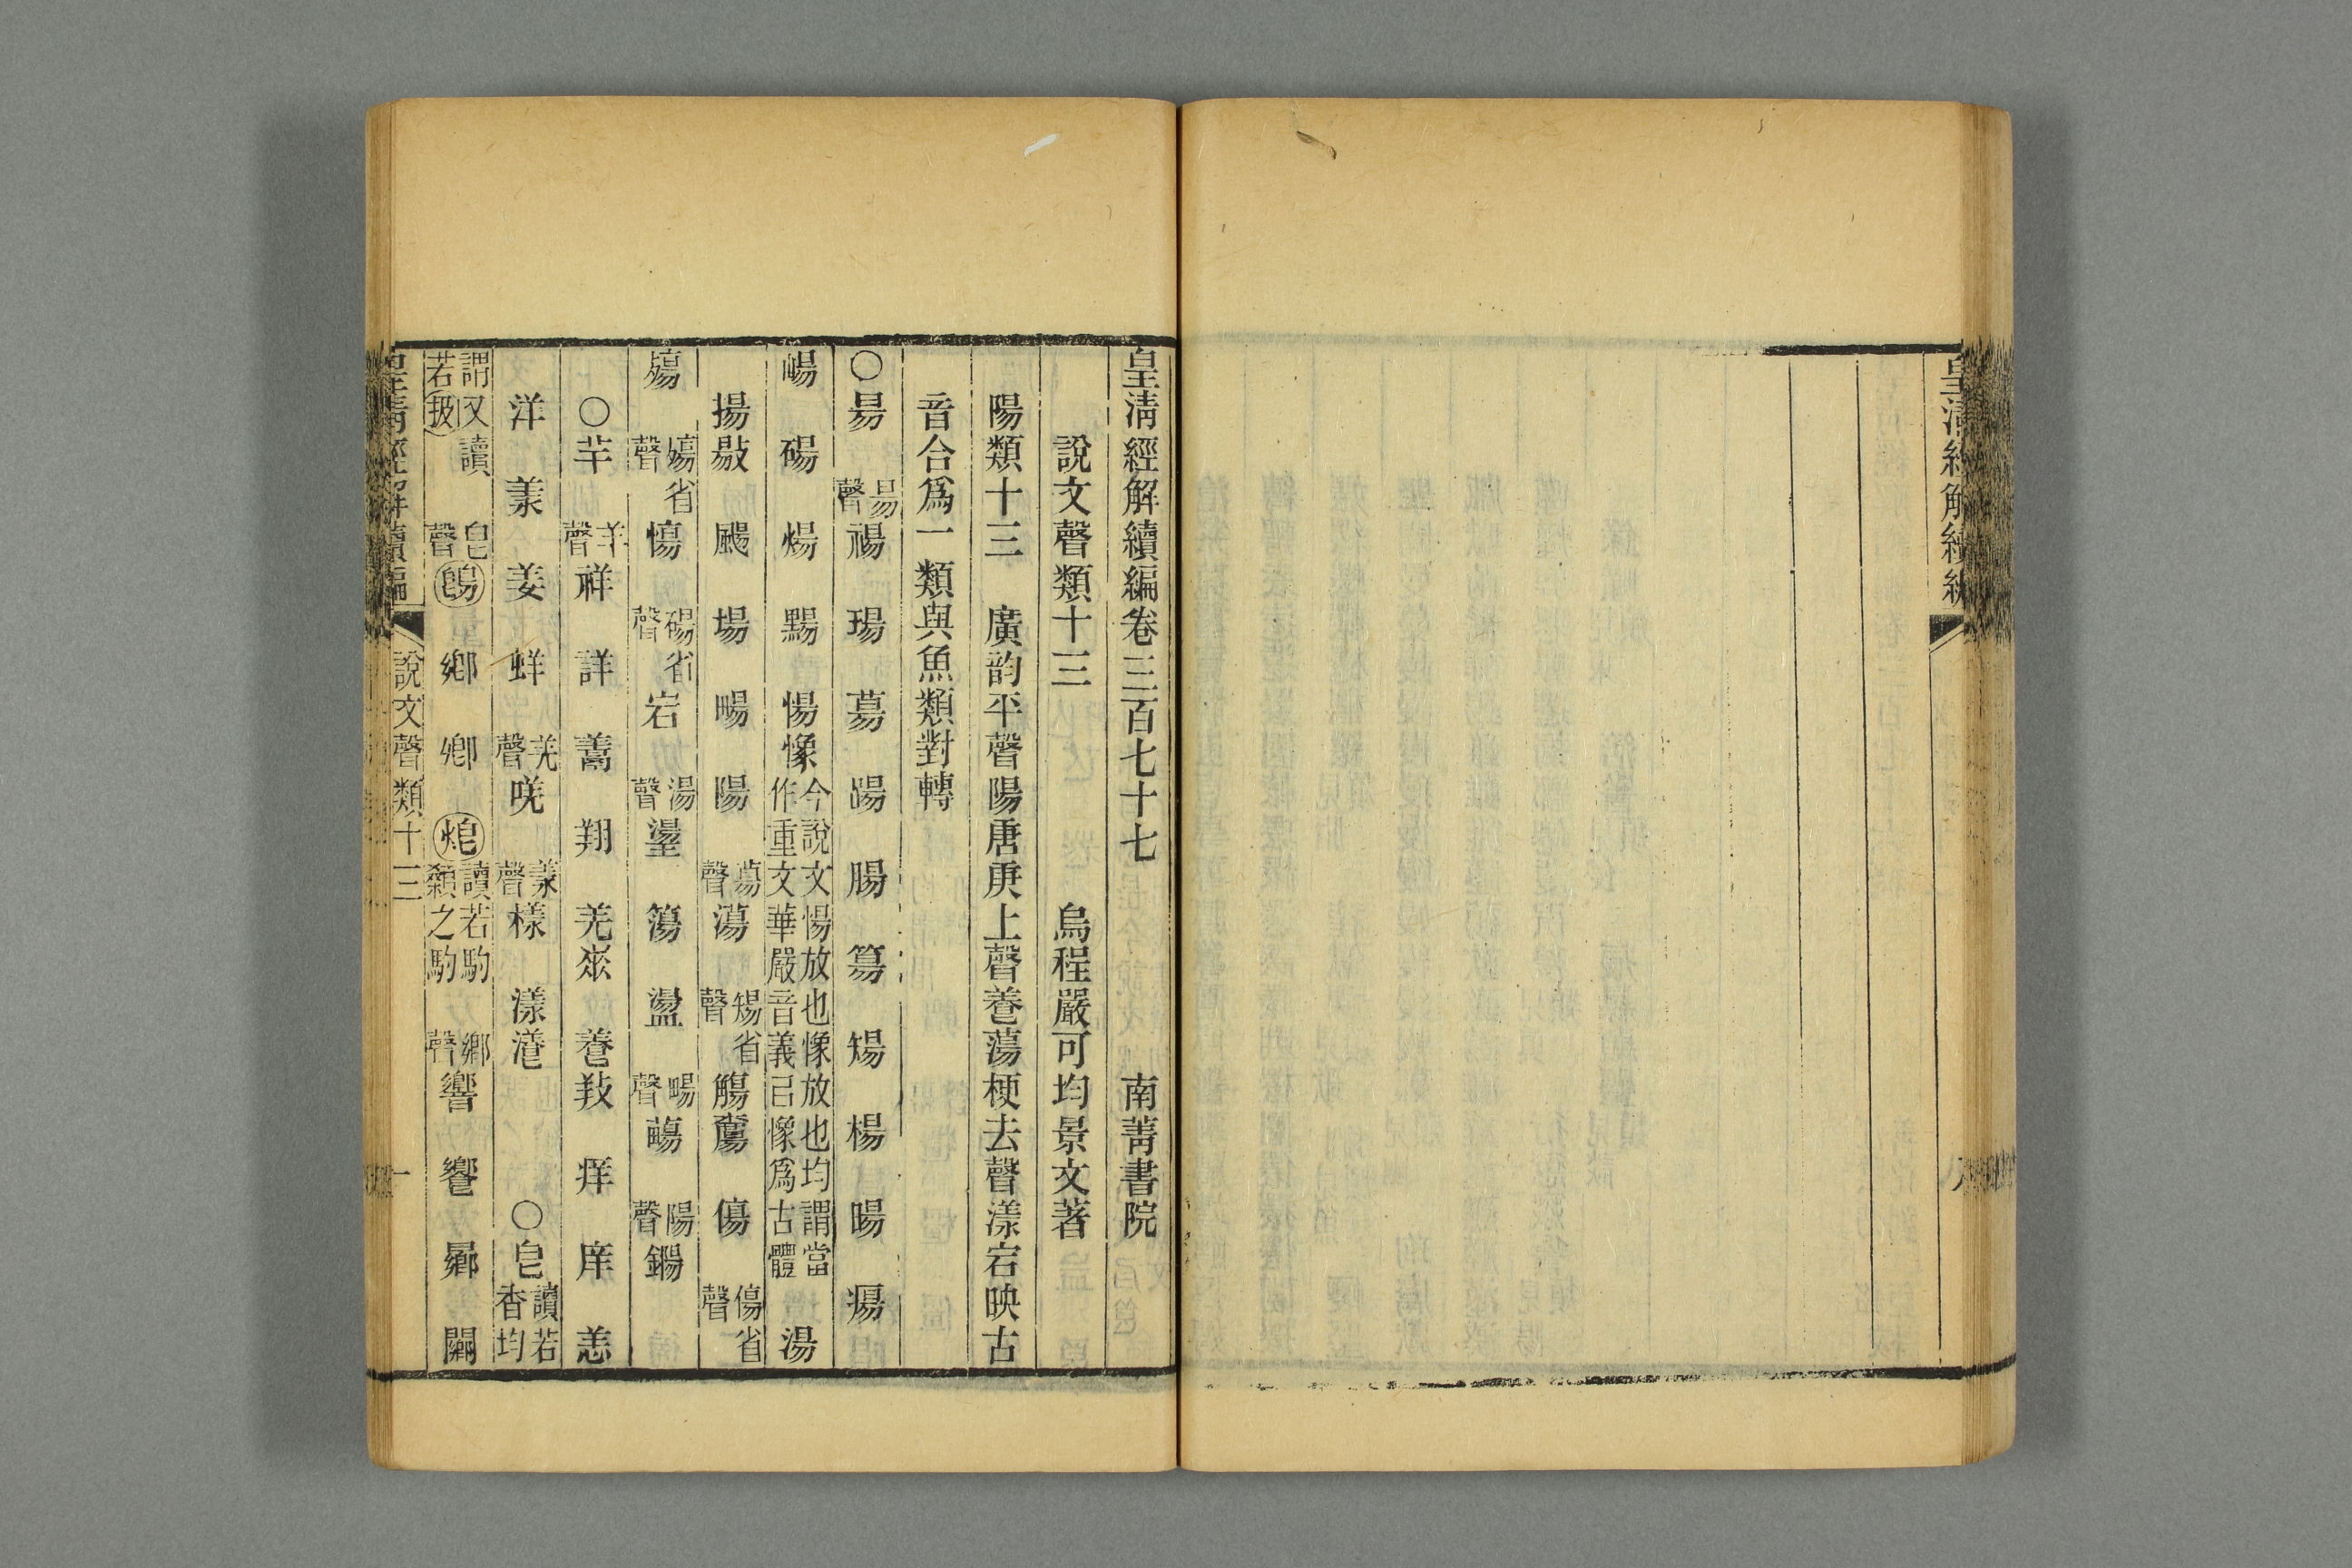 皇清經解續編
八
皇清經解續編卷三百七十七 南菁書院
說文聲類十三 烏程嚴可均景文著
陽類十三 廣韵平聲陽唐庚上聲養蕩梗去聲漾宕映古
音合爲一類與魚類對轉
○昜 昜聲 禓 瑒 䔑 踼 腸 簜 煬 楊 暘 瘍
崵 碭 煬 䵮 愓 憿 今說文愓放也憿放也均謂當作重文華嚴音義引憿爲古體 湯
揚敭 颺 場 畼 陽 䔑聲 蕩 煬省聲 觴 傷 傷省聲
殤 殤省聲 慯 碭省聲 宕 湯聲 盪 簜 盪 畼聲 陽聲 鐊
○羊 羊聲 祥 詳 翔 羌 養 痒 庠 恙
洋 羕 姜 蛘 羌聲 唴 羕聲 樣 漾 ○皀 讀若香均
謂又讀若 皀聲 鄉 卿 讀若駒顙之駒 鄉聲 響 饗 曏 闀
皇清經解續編 說文聲類十三 一